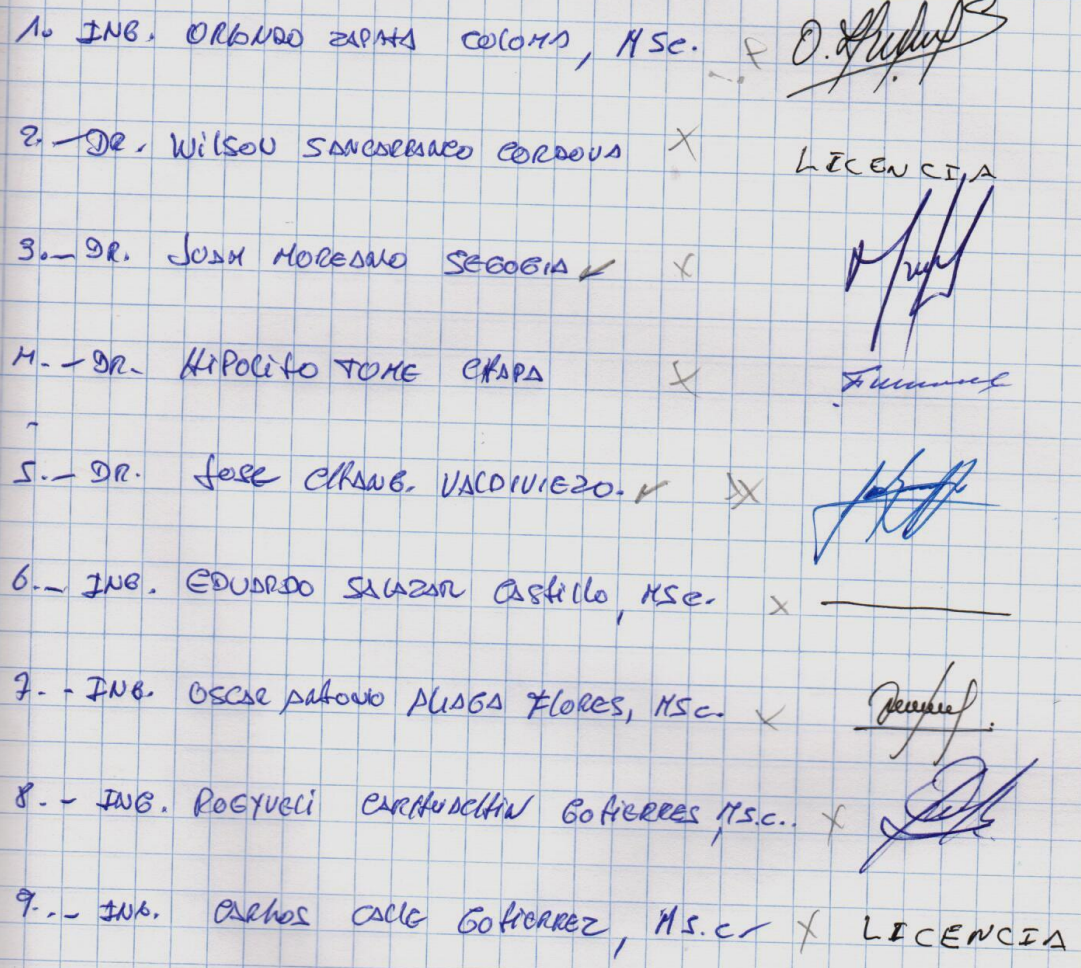 1. ING. ORLANDO ZAPATA COLOMA, MSc. O.
2.- DR. WILSON CORDOVA X LICENCIA
3.- DR. JUAN MOREANO SEGOBIA ✓ X
4.- DR. HIPOLITO TOME CHAPA X
5.- DR. JOSE CHANG. VALDIVIEZO. ✓ X
6.- ING. EDUARDO SALAZAR CASTILLO, MSc. X
7.- ING. OSCAR ANTONIO ALIAGA FLORES, MSc. X
8.- ING. GOTIERRES, MS.c. X
9.- ING. CARLOS CALLE GOTIERREZ, MS.c X LICENCIA